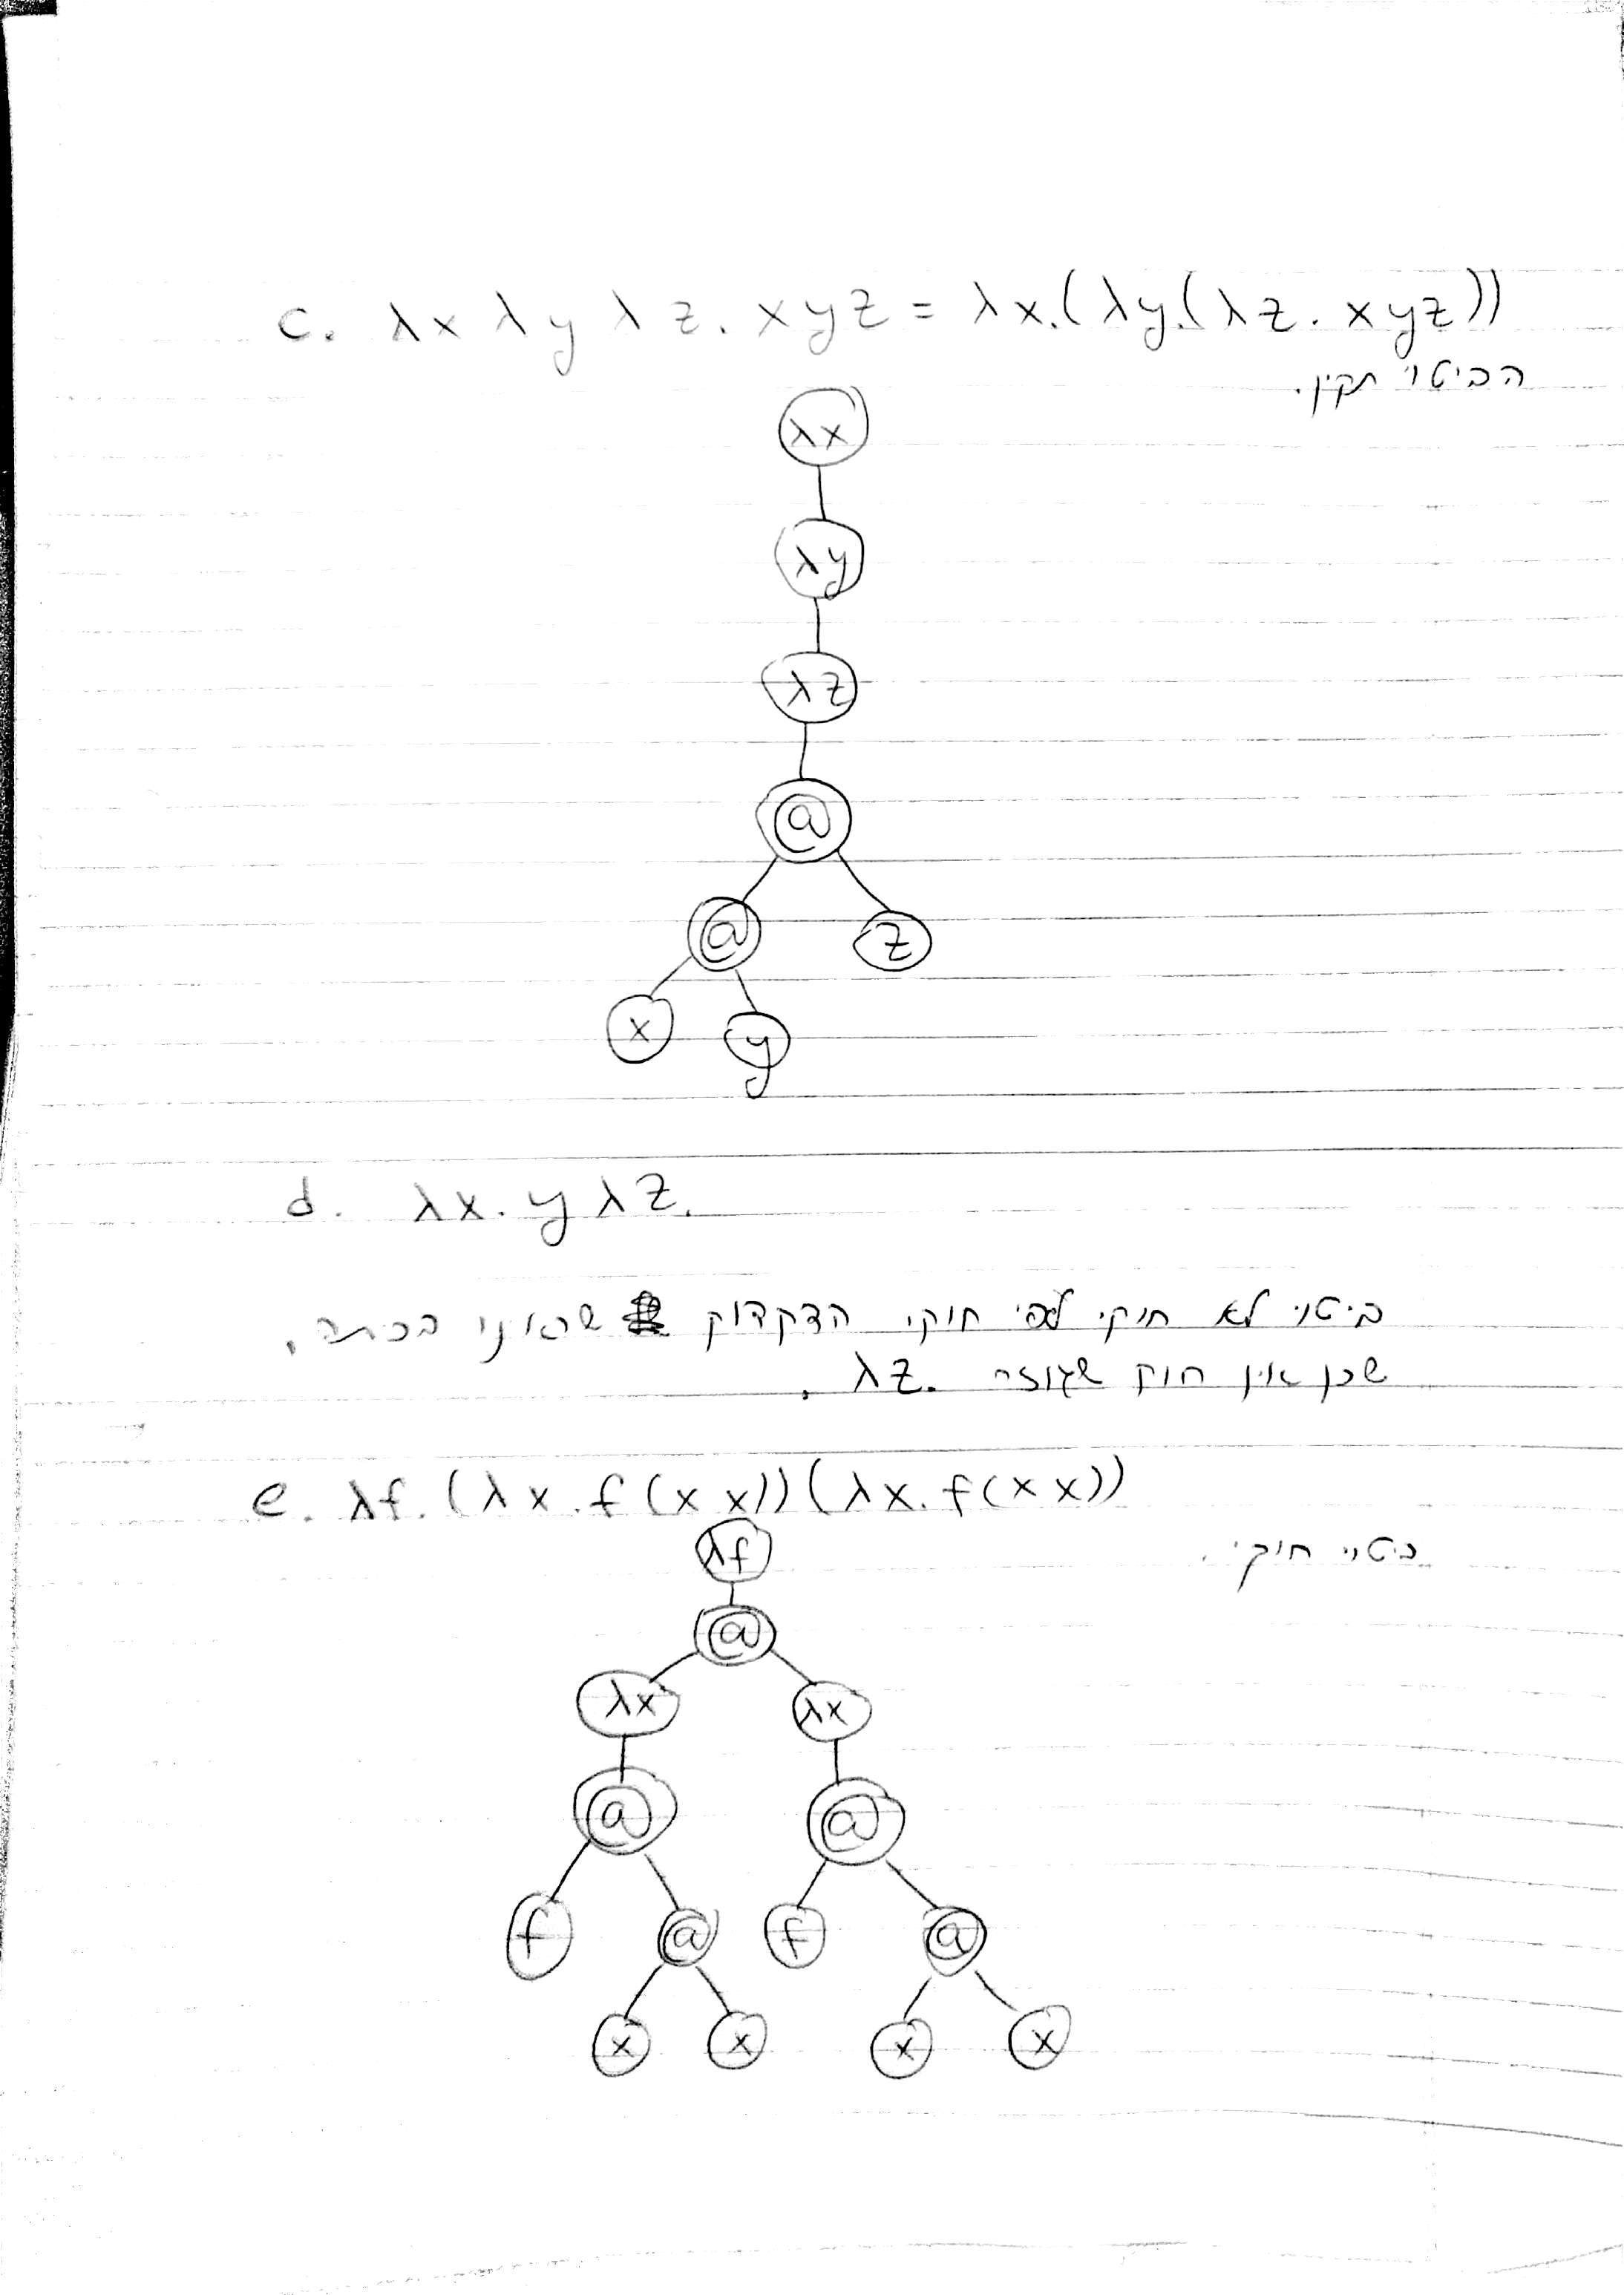 c. λx λy λz. xyz = λx.(λy.(λz. xyz))
הביטוי תקין.
λx
λy
λz
@
@ z
x y
d. λx. y λz.
ביטוי לא חוקי לפי חוקי הדקדוק שראינו בכתה,
שכן אין חוק שגוזר λz. .
e. λf. (λx. f(x x)) (λx. f(x x))
λf
ביטוי חוקי.
@
λx λx
@ @
f @ f @
x x x x